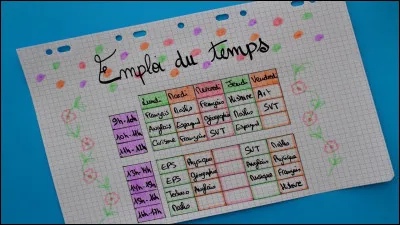 Emploi du temps
Lundi Mardi Mercredi Jeudi Vendredi
9h-10h Français Maths Français Histoire Art
10h-11h Anglais Espagnol Géographie Maths SVT
11h-12h Cuisine Français SVT Espagnol
13h-14h EPS Physique SVT Maths
14h-15h EPS Géographie Anglais Physique
15h-16h Techno Anglais Musique Français
16h-17h Maths Histoire